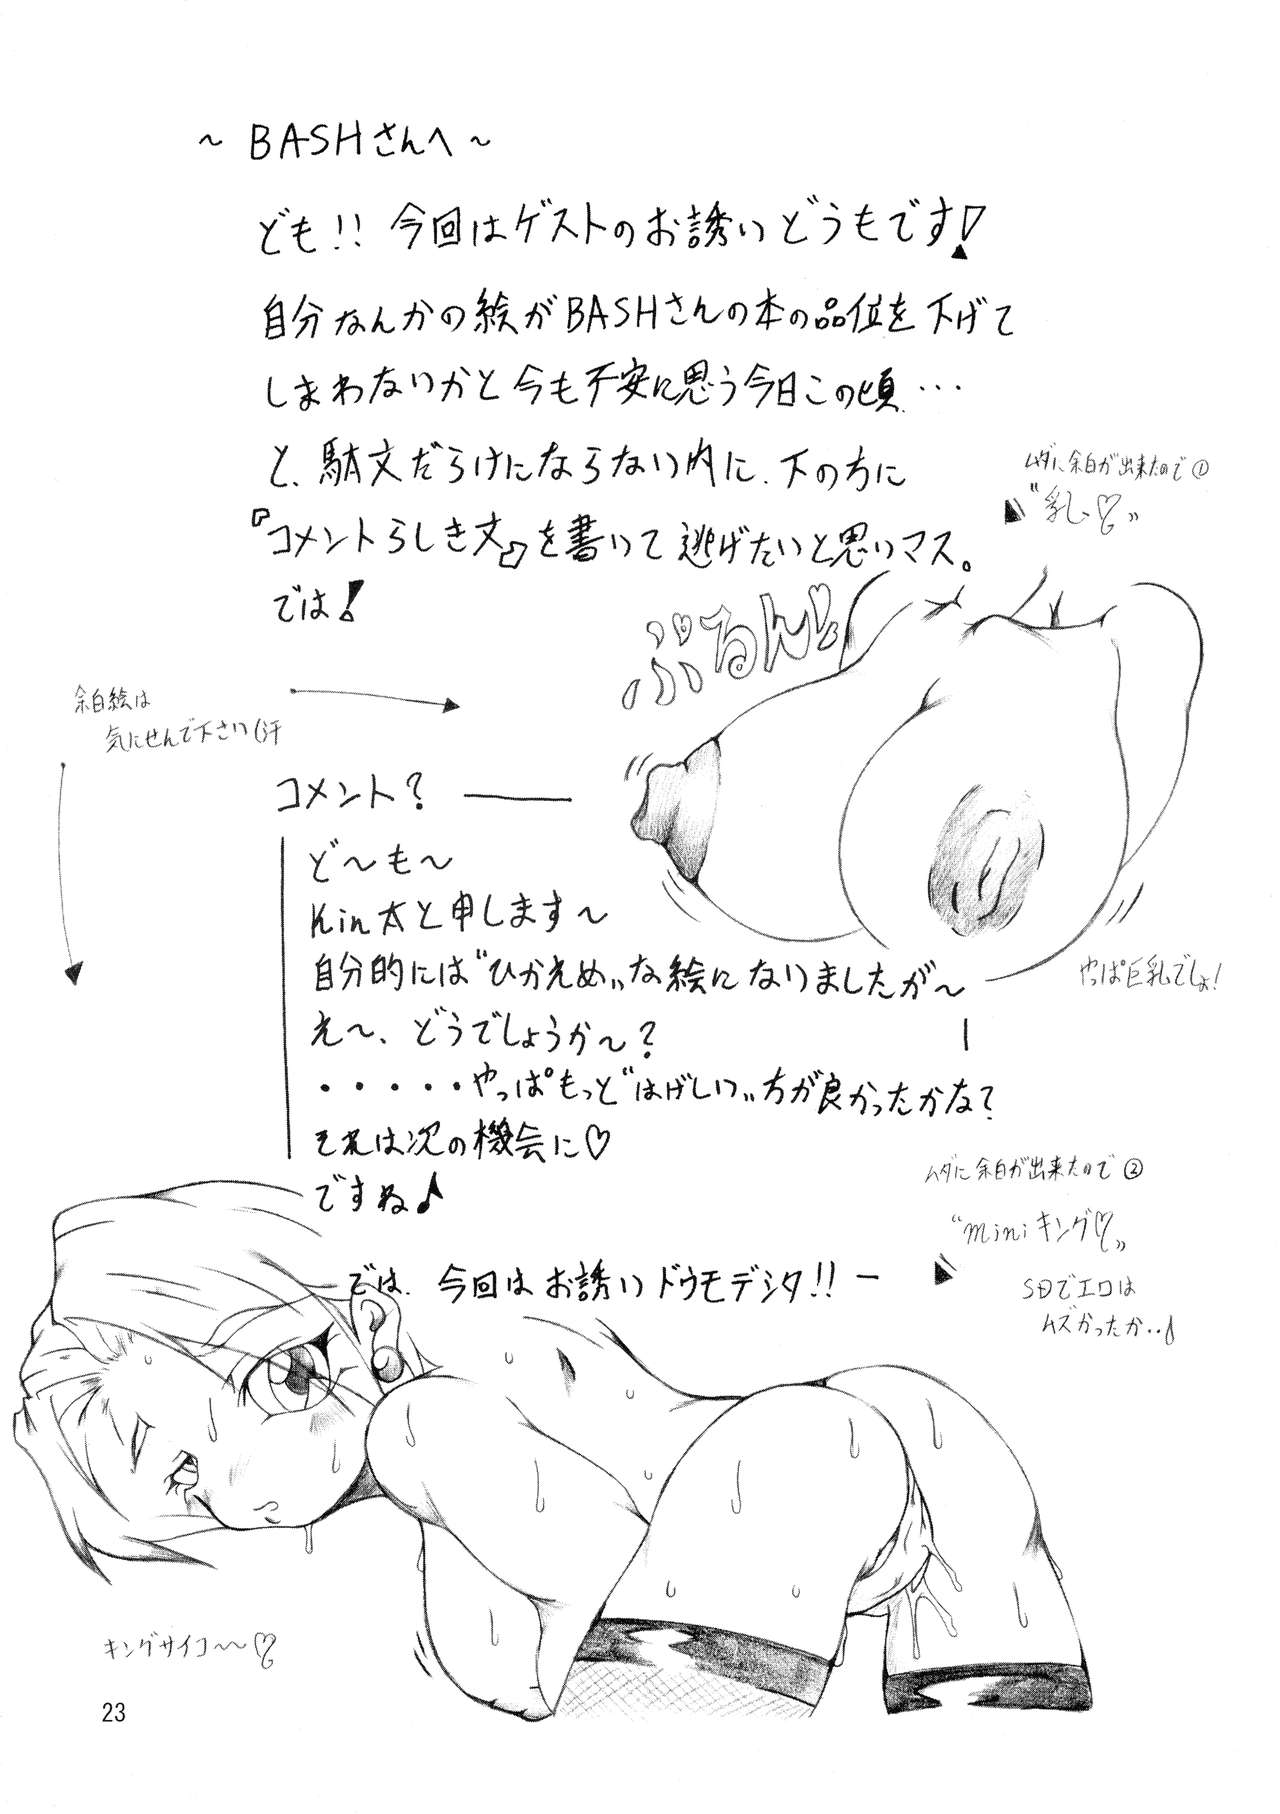 ～BASHさんへ～
ども!!今回はゲストのお誘いどうもです!
自分なんかの絵がBASHさんの本の品位を下げて
しまわないかと今も不安に思う今日この頃…
と、駄文だらけにならない内に、下の方に
『コメントらしき文』を書いて逃げたいと思いマス。
では!
ムダに余白が出来たので①
"乳♡"
ぷるんっ♡
余白絵は
気にせんで下さい(汗
コメント?
ど～も～
Kin太と申します～
自分的には"ひかえめ"な絵になりましたが～
え～、どうでしょうか～?
・・・・・やっぱもっと"はげしい"方が良かったかな?
それは次の機会に♡
ですね♪
やっぱ巨乳でしょ!
ムダに余白が出来たので②
"miniキング♡"
SDでエロは
ムズかったか‥♪
では、今回はお誘いドウモデシタ!!
キングサイコ～～♡
23